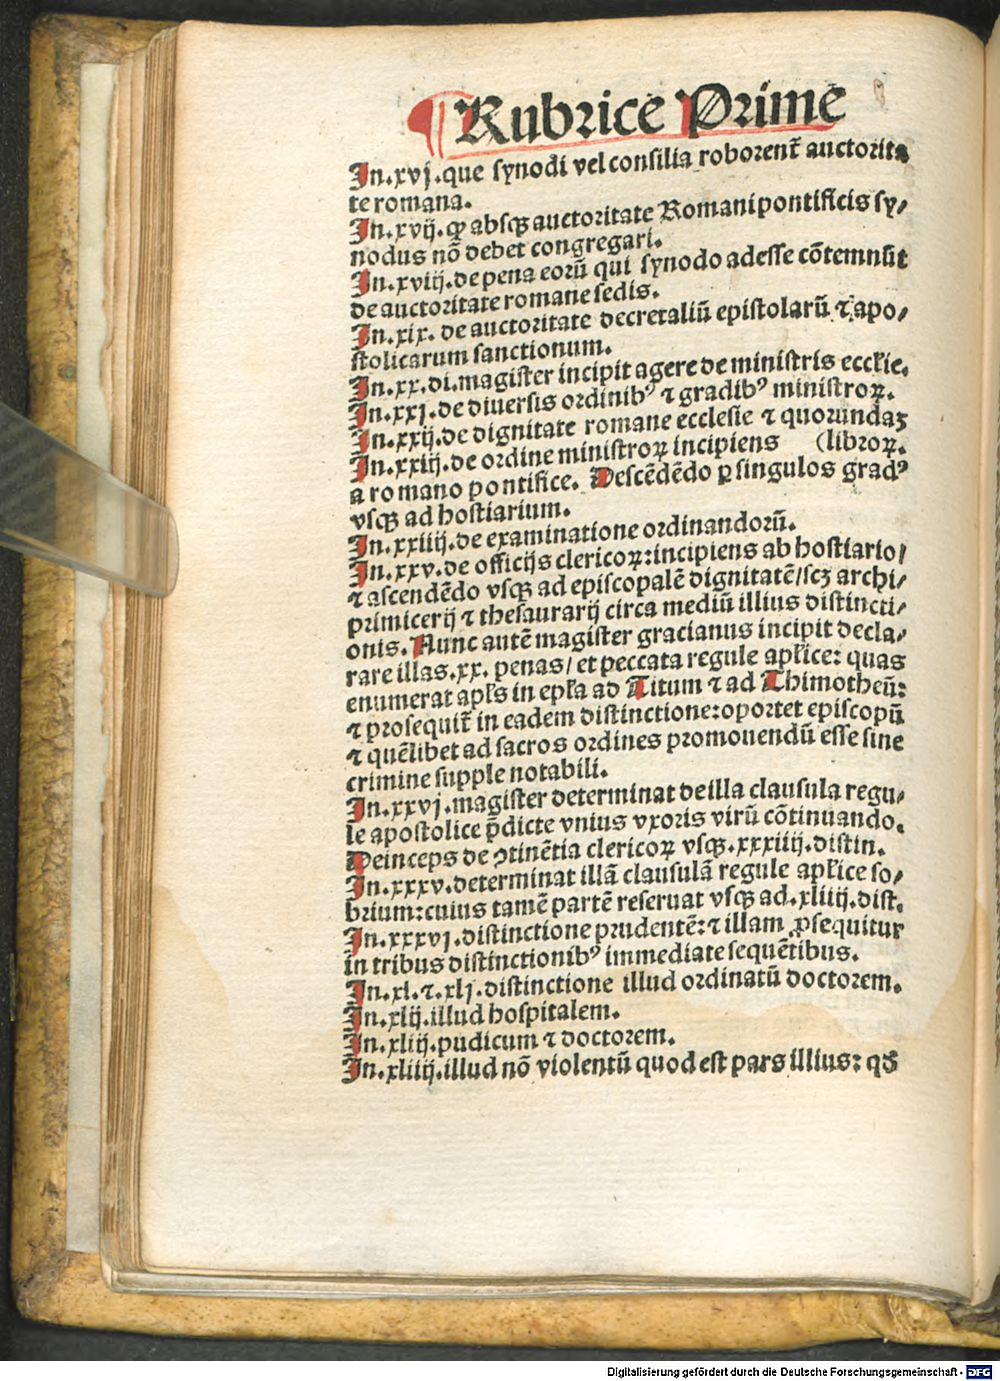 ¶ Rubrice Prime
In.xvj.que synodi vel consilia roborent̃ auctorita
te romana.
In.xvij.ꝙ absqꝫ auctoritate Romani pontificis sy/
nodus nō debet congregari.
In.xviij.de pena eorū qui synodo adesse cōtemnūt
de auctoritate romane sedis.
In.xix. de auctoritate decretaliū epistolarū ⁊ apo/
stolicarum sanctionum.
In.xx.di.magister incipit agere de ministris eccłie.
In.xxj.de diuersis ordinibꝰ ⁊ gradibꝰ ministroꝝ.
In.xxij.de dignitate romane ecclesie ⁊ quorundaꝫ
In.xxiij.de ordine ministroꝝ incipiens (libroꝝ.
a romano pontifice. Descēdēdo ꝑ singulos gradꝰ
vsqꝫ ad hostiarium.
In.xxiiij.de examinatione ordinandorū.
In.xxv.de officijs clericoꝝ:incipiens ab hostiario/
⁊ ascendēdo vsqꝫ ad episcopalē dignitatē/scꝫ archi/
primicerij ⁊ thesaurarij circa mediū illius distincti/
onis. Nunc autē magister gracianus incipit decla/
rare illas.xx. penas/ et peccata regule apłice: quas
enumerat apłs in epła ad Titum ⁊ ad Thimotheū:
⁊ prosequit̃ in eadem distinctione:oportet episcopū
⁊ quēlibet ad sacros ordines promouendū esse sine
crimine supple notabili.
In.xxvj.magister determinat de illa clausula regu/
le apostolice p̄dicte vnius vxoris virū cōtinuando.
Deinceps de ꝯtinētia clericoꝝ vsqꝫ.xxxiiij.distin.
In.xxxv.determinat illā clausulā regule apłice so/
brium:cuius tamē partē reseruat vsqꝫ ad.xliiij.dist.
In.xxxvj.distinctione prudentē:⁊ illam ꝓsequitur
in tribus distinctionibꝰ immediate sequētibus.
In.xl.⁊.xlj.distinctione illud ordinatū doctorem.
In.xlij.illud hospitalem.
In.xliij.pudicum ⁊ doctorem.
In.xliiij.illud nō violentū quod est pars illius: qđ
Digitalisierung gefördert durch die Deutsche Forschungsgemeinschaft - DFG